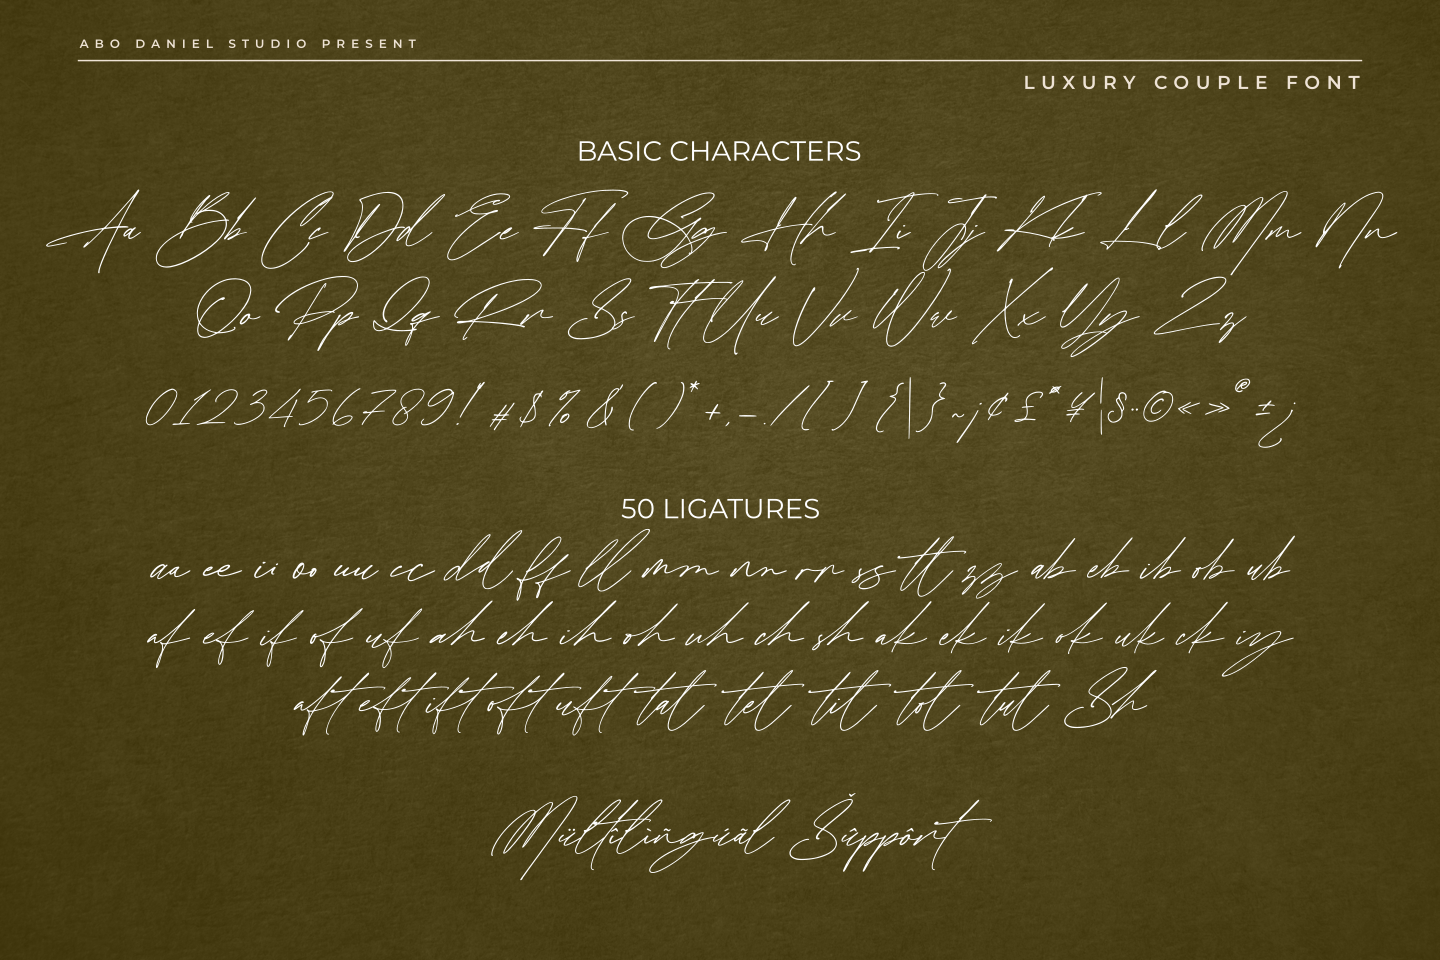 ABO DANIEL STUDIO PRESENT
LUXURY COUPLE FONT
BASIC CHARACTERS
Aa Bb Cc Dd Ee Ff Gg Hh Ii Jj Kk Ll Mm Nn
Oo Pp Qq Rr Ss Tt Uu Vv Ww Xx Yy Zz
0123456789! # $ % & ( ) * + , - . / [ ] { | } ~ ¡ ¢ £ ¤ ¥ ¦ § ¨ © « » ® ± ¿
50 LIGATURES
aa ee ii oo uu cc dd ff ll mm nn rr ss tt zz ab eb ib ob ub
af ef if of uf ah eh ih oh uh ch sh ak ek ik ok uk ck iy
aft eft ift oft uft tat tet tit tot tut Sh
Mültîlìñgúãl Šûppôrt